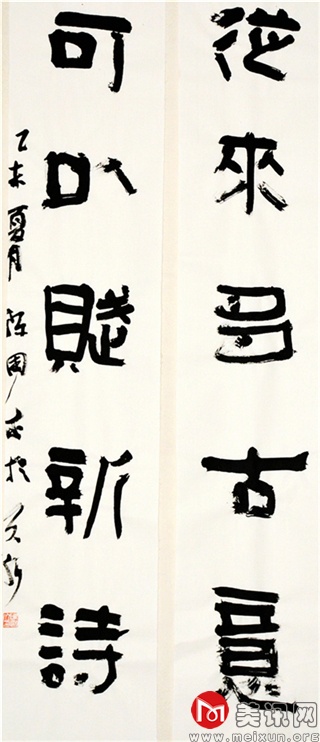 從來多古意
可以賦新詩
乙未夏月陈国
美讯网
www.meixun.org